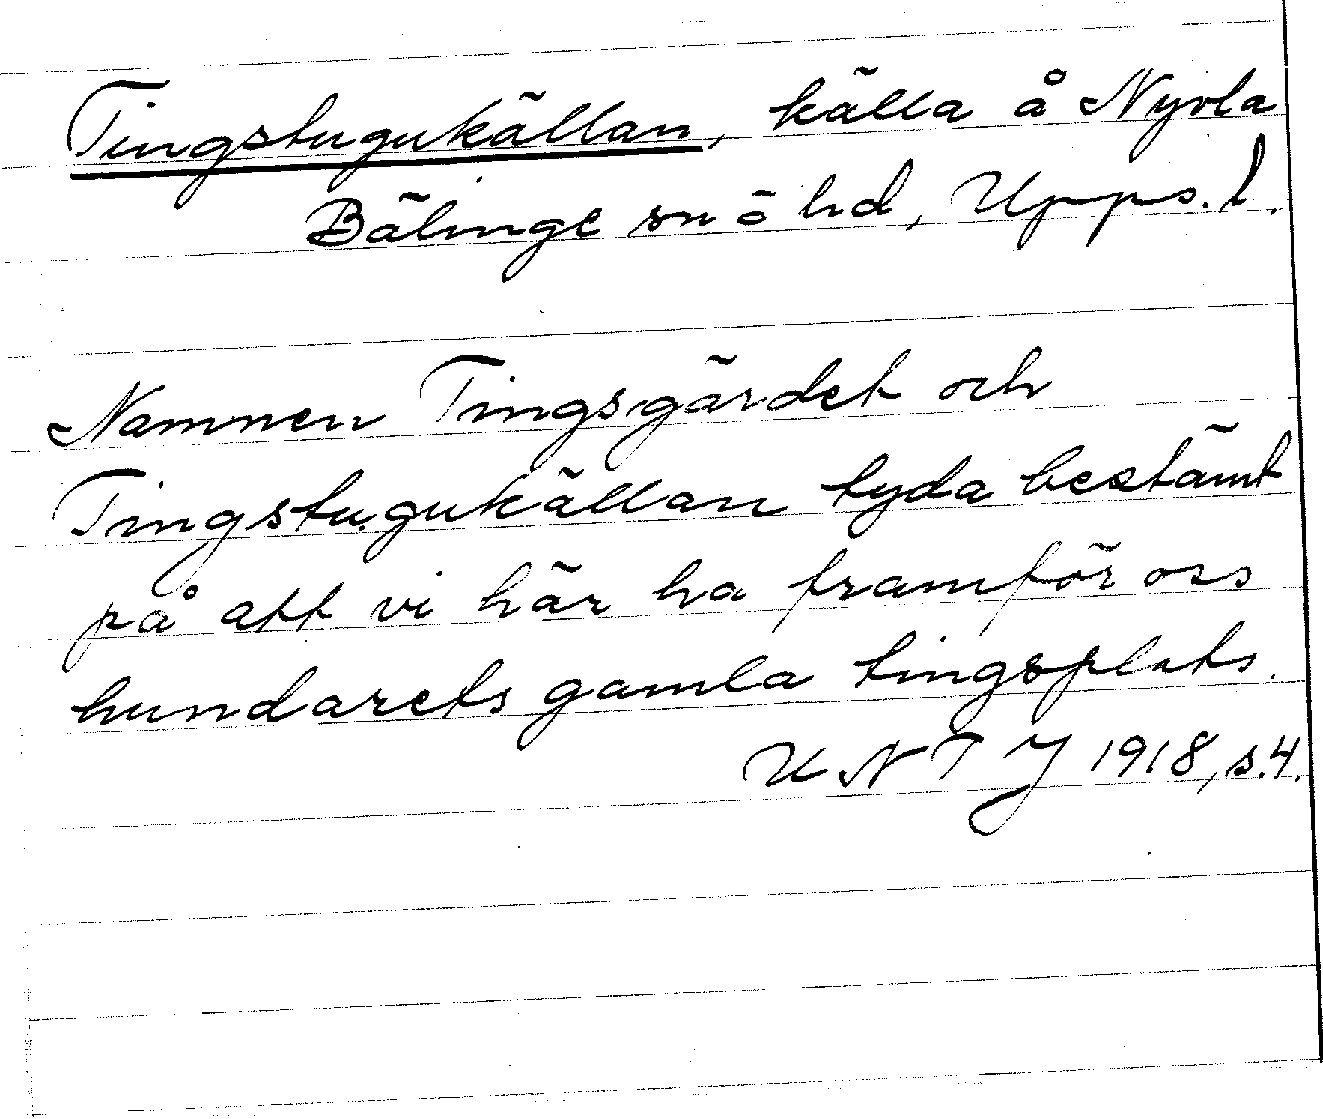 Tingstugukällan, källa å Nyvla
Bälinge sn ö hd, Upps. l.
Namnen Tingsgärdet och
Tingstugukällan tyda bestämt
på att vi här ha framför oss
hundarets gamla tingsplats.
U N T J 1918, s. 4.